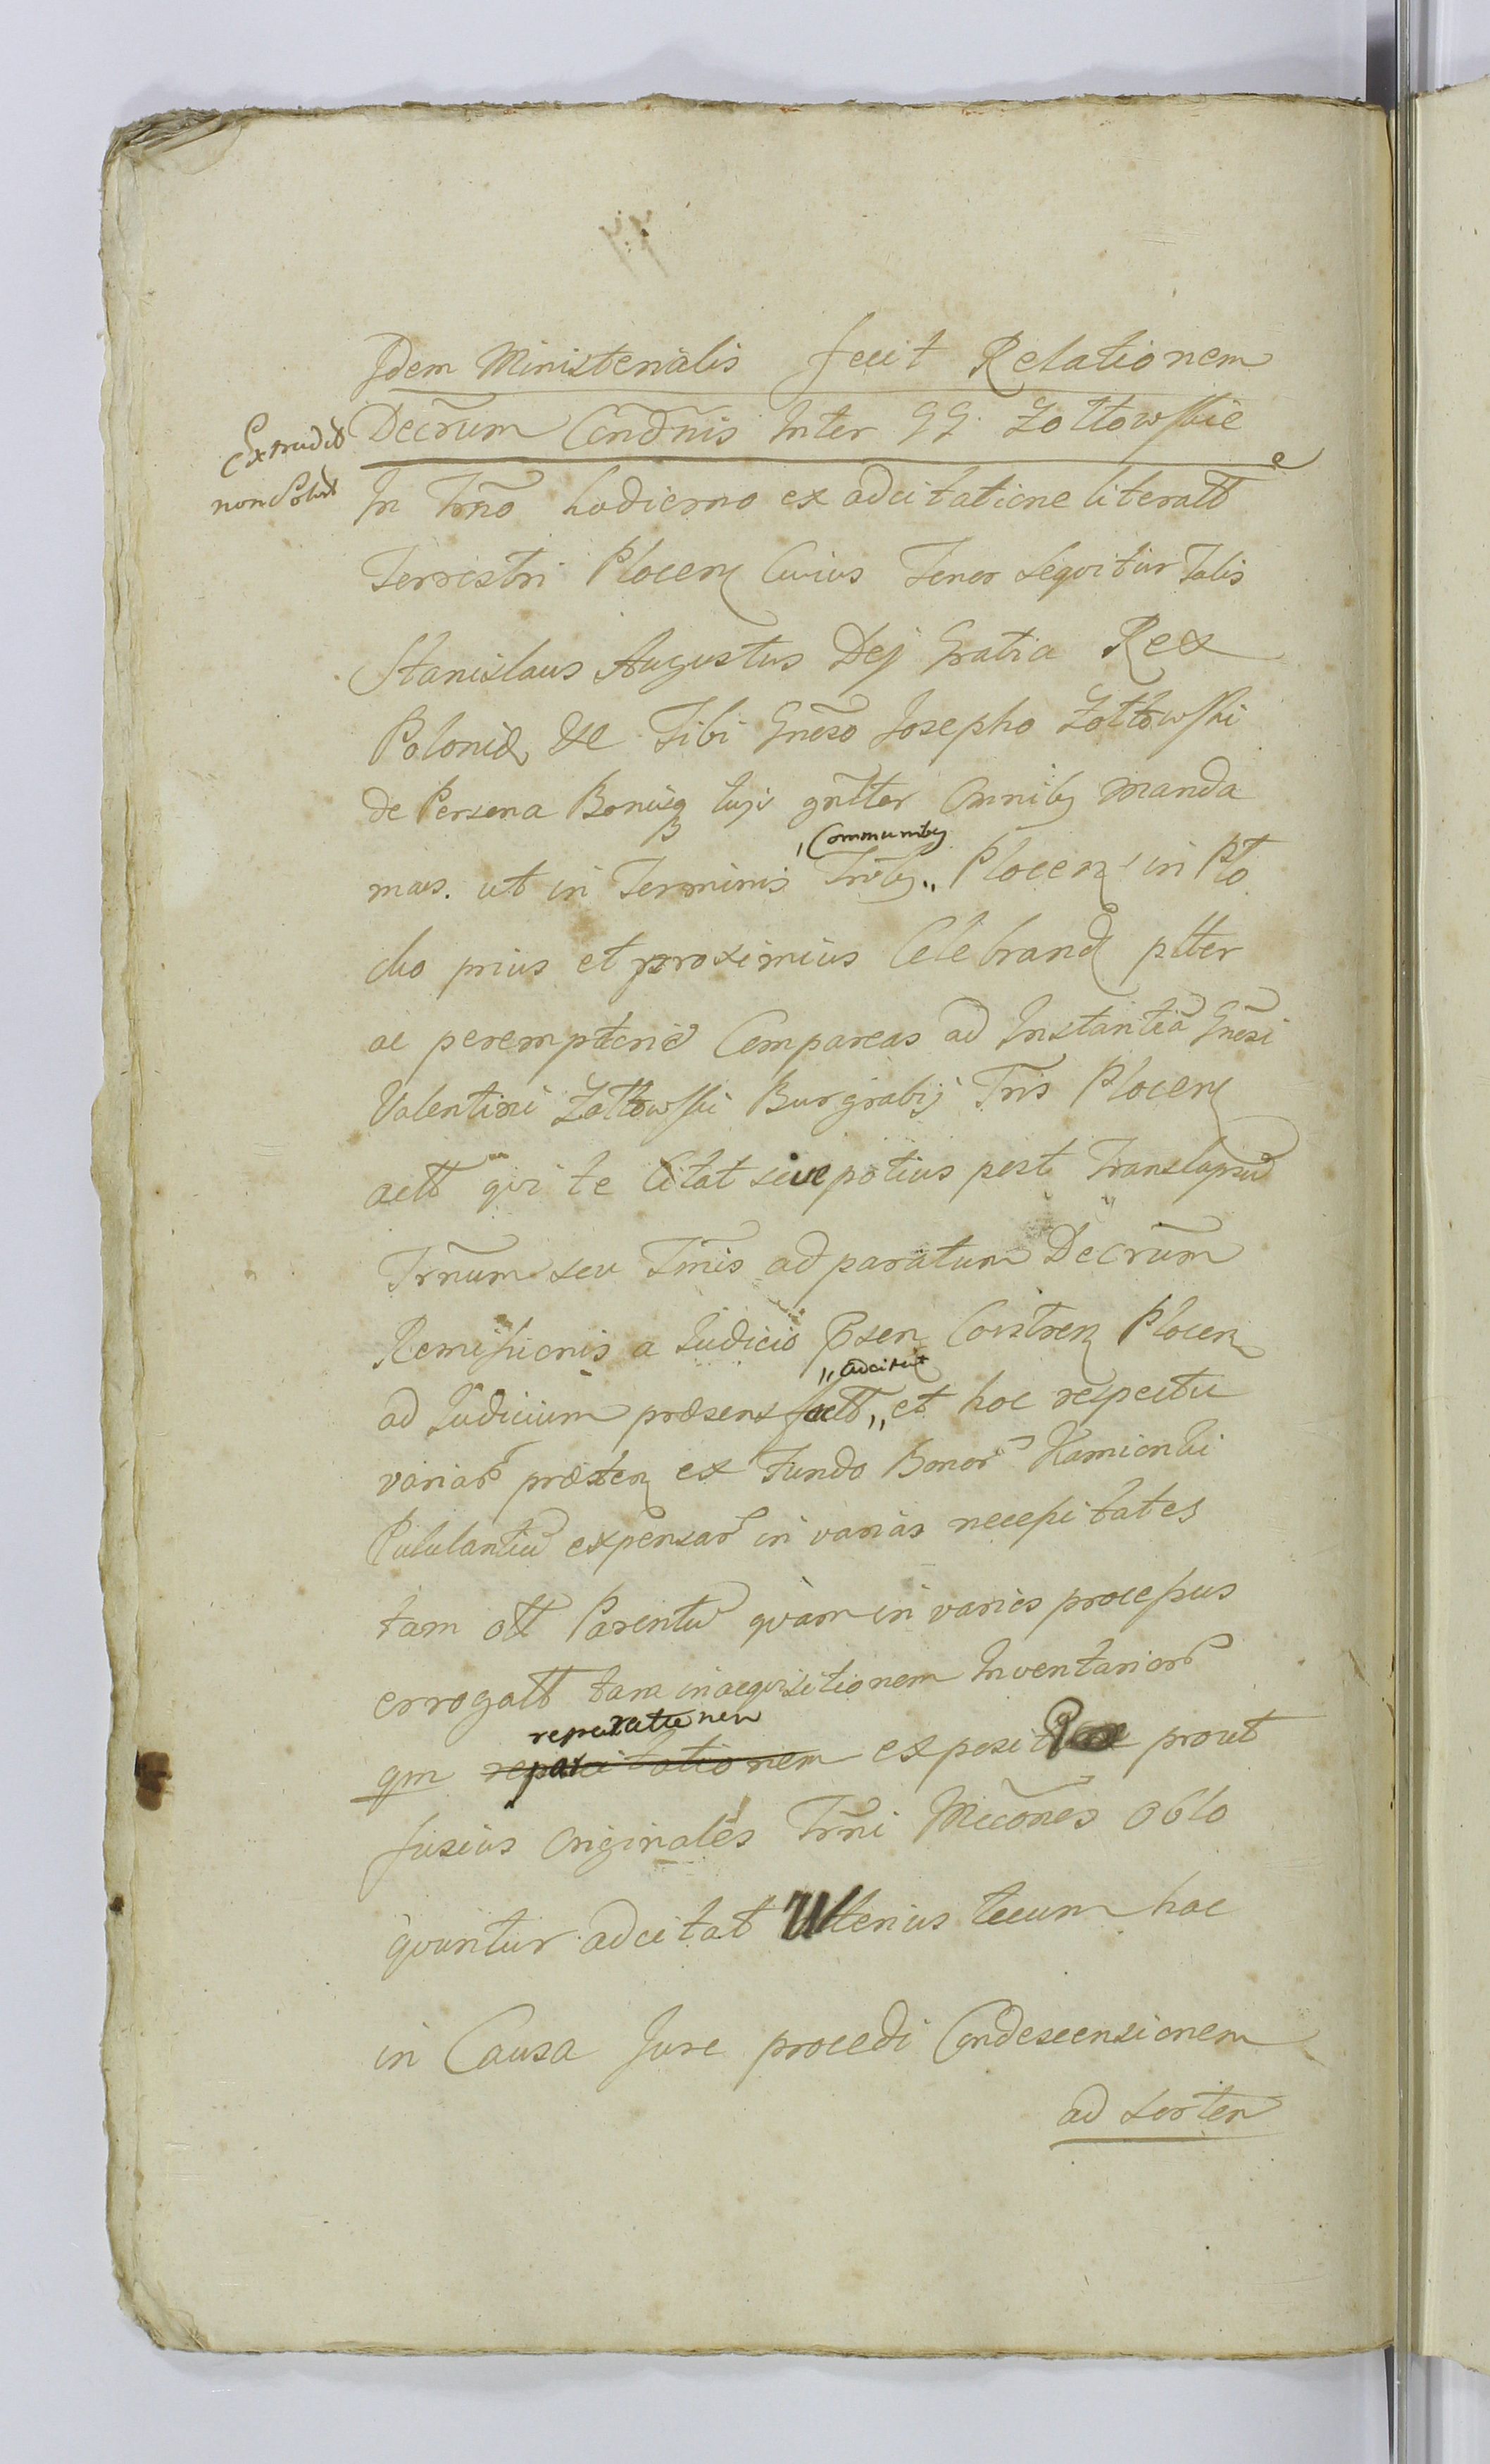 Idem Ministerialis fecit Relationem
Extradit
non Solvit
Decrum Condnis Inter GG Zołtowskie
In Trno hodierno ex adcitatione literatt
Terrestri Plocen Cuius Tenor sequitur Talis
Stanislaus Augustus Dej Gratia Rex
Poloniæ &c Tibi Gneso Josepho Zołtowski
de Persona Bonisq tuis gnlter Omnibq manda
mus. ut in Terminis Trribq „ Plocen in Pło
„ Communibq
cko prius et proximius Celebrand plter
ac peremptorie Compareas ad Instantia Gnesi
Valentini Zołtowski Burgrabij Tris Plocen
actt qvi te Citat sive potius post Translapsu
Trnum seu Tmis ad paratum Decrum
Remissionis a Judicio Osen Castren Plocen
ad Judicium præsens factt „ et hoc respectu
„ adcitat
variar præten ex Fundo Bonor Kamionki
Pululantiu expensar in varias necessitates
tam ott Parentu qvam in varios processus
errogatt tam in acqvisitionem Inventarior
reparationem
qm exposit prout
fusius Originales Trni Mccones Oblo
qvuntur adcitat Ulterius tecum hac
in Causa Jure procedi Condescensionem
ad sortem